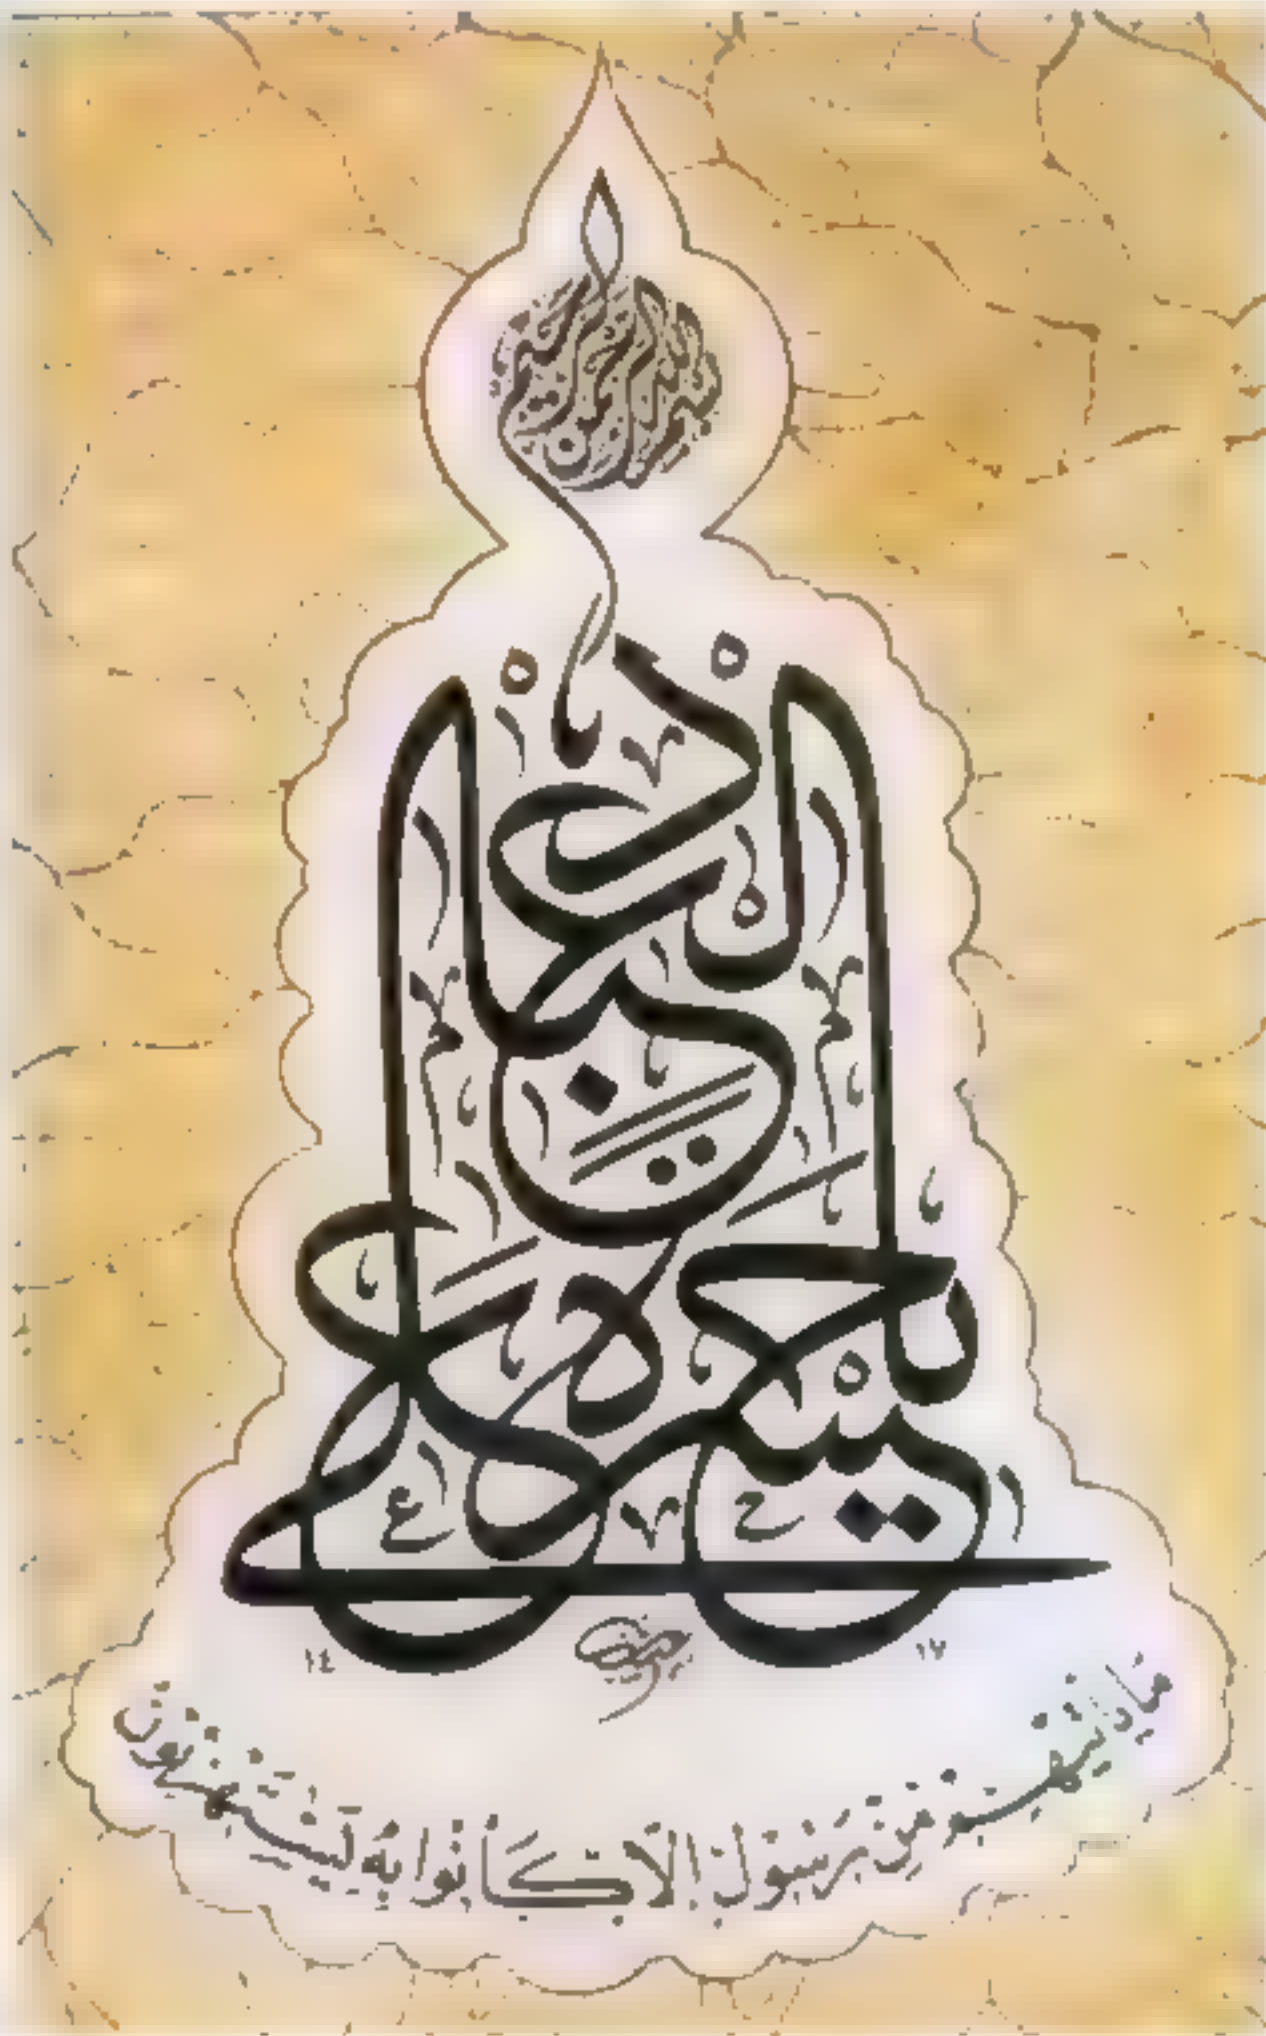 بسم الله الرحمن الرحيم
يحسرة على العباد
١٤ ١٧
مَا يَأْتِيهِم مِّن رَّسُولٍ إِلَّا كَانُوا بِهِ يَسْتَهْزِئُونَ